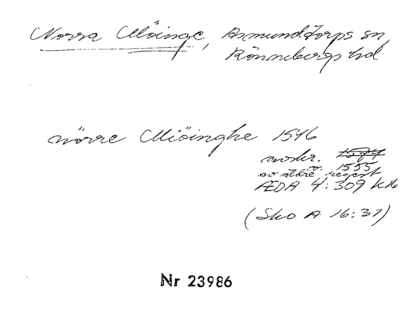 Norra Möinge, Asmundtorps sn,
Rönnebergs hd
nörre Miöinghe 1546
avskr. 1555
av äldre regest
ÆDA 4: 309 Kbh
(Sko A 16:37)
Nr 23986